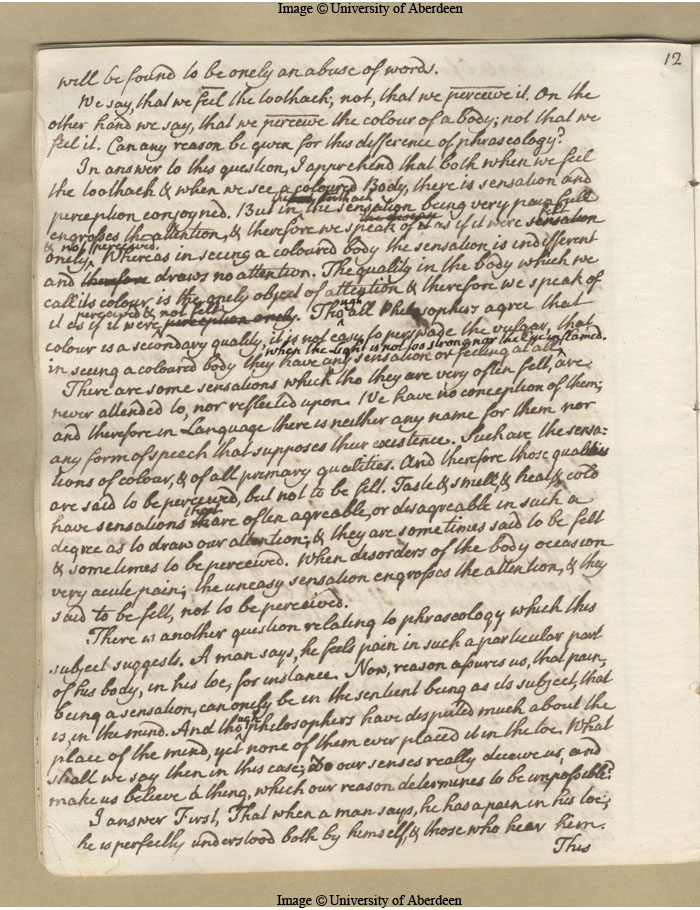 Image © University of Aberdeen
12
will be found to be onely an abuse of words.
We say, that we feel the toothach; not, that we perceive it. On the
other hand we say, that we perceive the colour of a body; not that we
feel it. Can any reason be given for this difference of phraseology?
In answer to this question, I apprehend that both when we feel
the toothach & when we see a coloured Body, there is sensation and
perception conjoyned. But in the toothach the sensation being very painfull
engrosses the attention, & therefore we speak of it as if it were felt
onely, & not perceived. Whereas in seeing a coloured body the sensation is indifferent
and therefore draws no attention. The quality in the body which we
call its colour is the onely object of attention & therefore we speak of
it as if it were perceived & not felt. Though all Philosophers agree that
colour is a secondary quality, it is not easy to perswade the vulgar, that
in seeing a coloured body when the Light is not too strong nor the Eye inflamed. they have any sensation or feeling at all
There are some sensations which tho they are very often felt, are
never attended to, nor reflected upon. We have no conception of them;
and therefore in Language there is neither any name for them nor
any form of speech that supposes their existence. Such are the sensa=
tions of colour, & of all primary qualities. And therefore those qualities
are said to be perceived, but not to be felt. Taste & smell, & heat & cold
have sensations that are often agreeable, or disagreeable in such a
degree as to draw our attention; & they are sometimes said to be felt
& sometimes to be perceived. When desorders of the body occasion
very acute pain; the uneasy sensation engrosses the attention, & they
said to be felt, not to be perceived.
There is another question relating to phraseology which this
subject suggests. A man says, he feels pain in such a particular part
of his body, in his toe, for instance. Now, reason assures us, that pain,
being a sensation, can onely be in the sentient being as its subject, that
is, in the mind. And though philosophers have disputed much about the
place of the mind, yet none of them ever placed it in the toe. What
shall we say then in this case; do our senses really deceive us, and
make us believe a thing, which our reason determines to be impossible?
I answer First, That when a man says, he has a pain in his toe;
he is perfectly understood both by himself, & those who hear him.
This
Image © University of Aberdeen